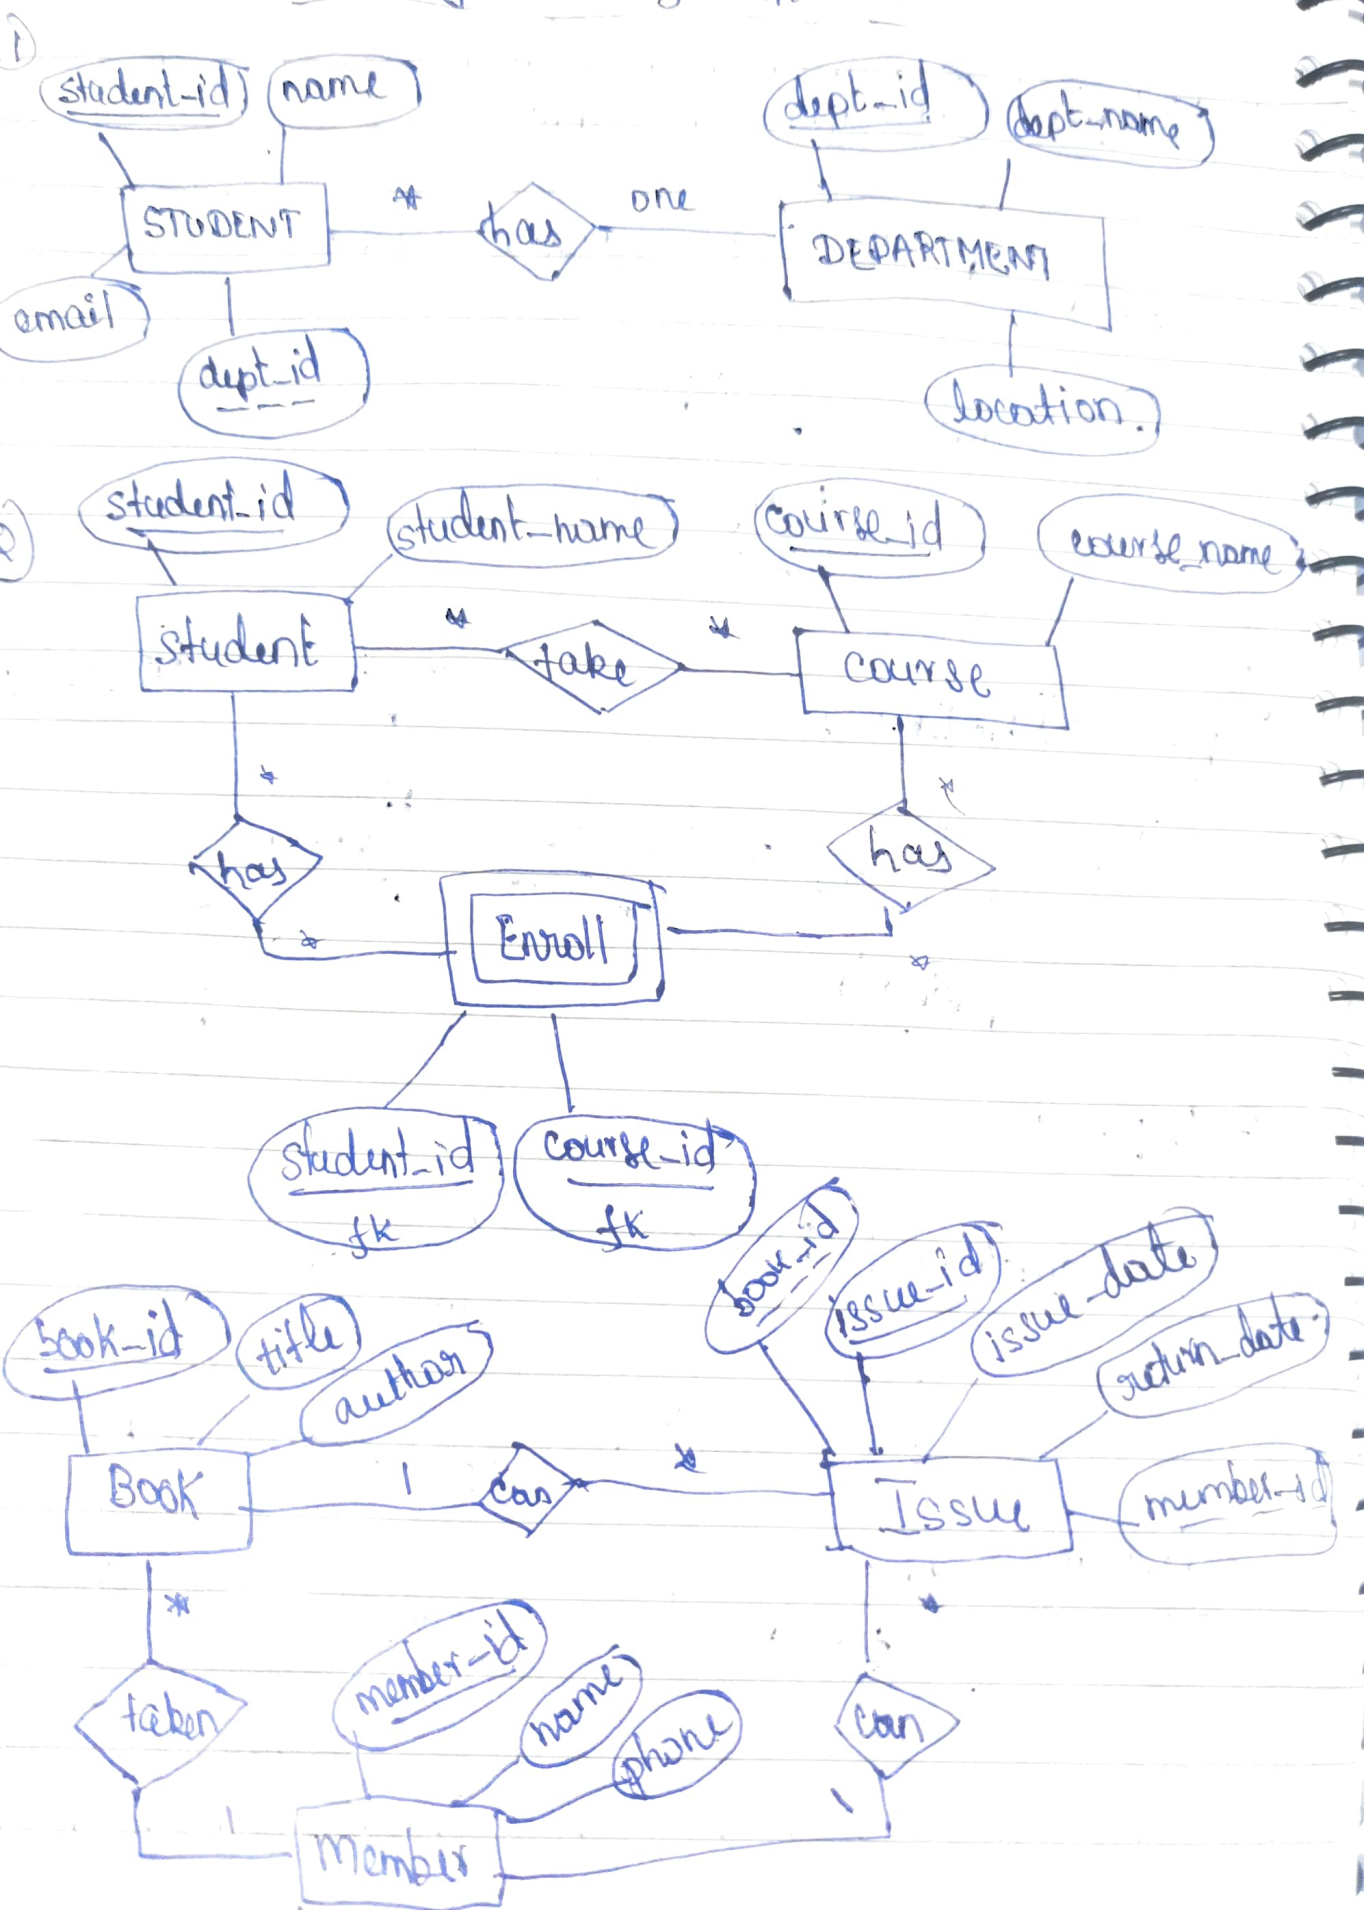 1
student_id name
dept_id dept_name
STUDENT * has one DEPARTMENT
email
dept_id
location.
2
student_id student_name course_id course_name
student * take * course
* *
has has
* Enroll *
student_id course_id
fk fk
book_id issue_id issue_date return_date
book_id title author
BOOK 1 can * Issue member_id
* *
member_id name phone
taken can
1 1
Member